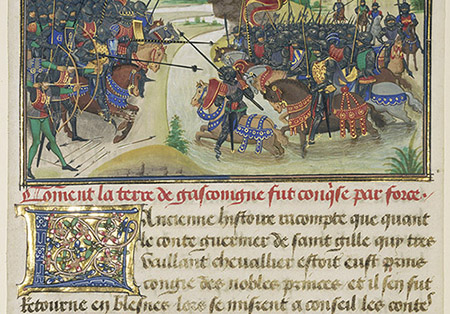 Coment la terre de gascoingne fut conqse par force .
L Ancienne histoire racompte que quant
le conte guermer de saint gille quy tres
vaillant chevallier estoit eust prins
congie des nobles princes et il sen fut
Retourne en blesves lors se misrent a conseil les contes